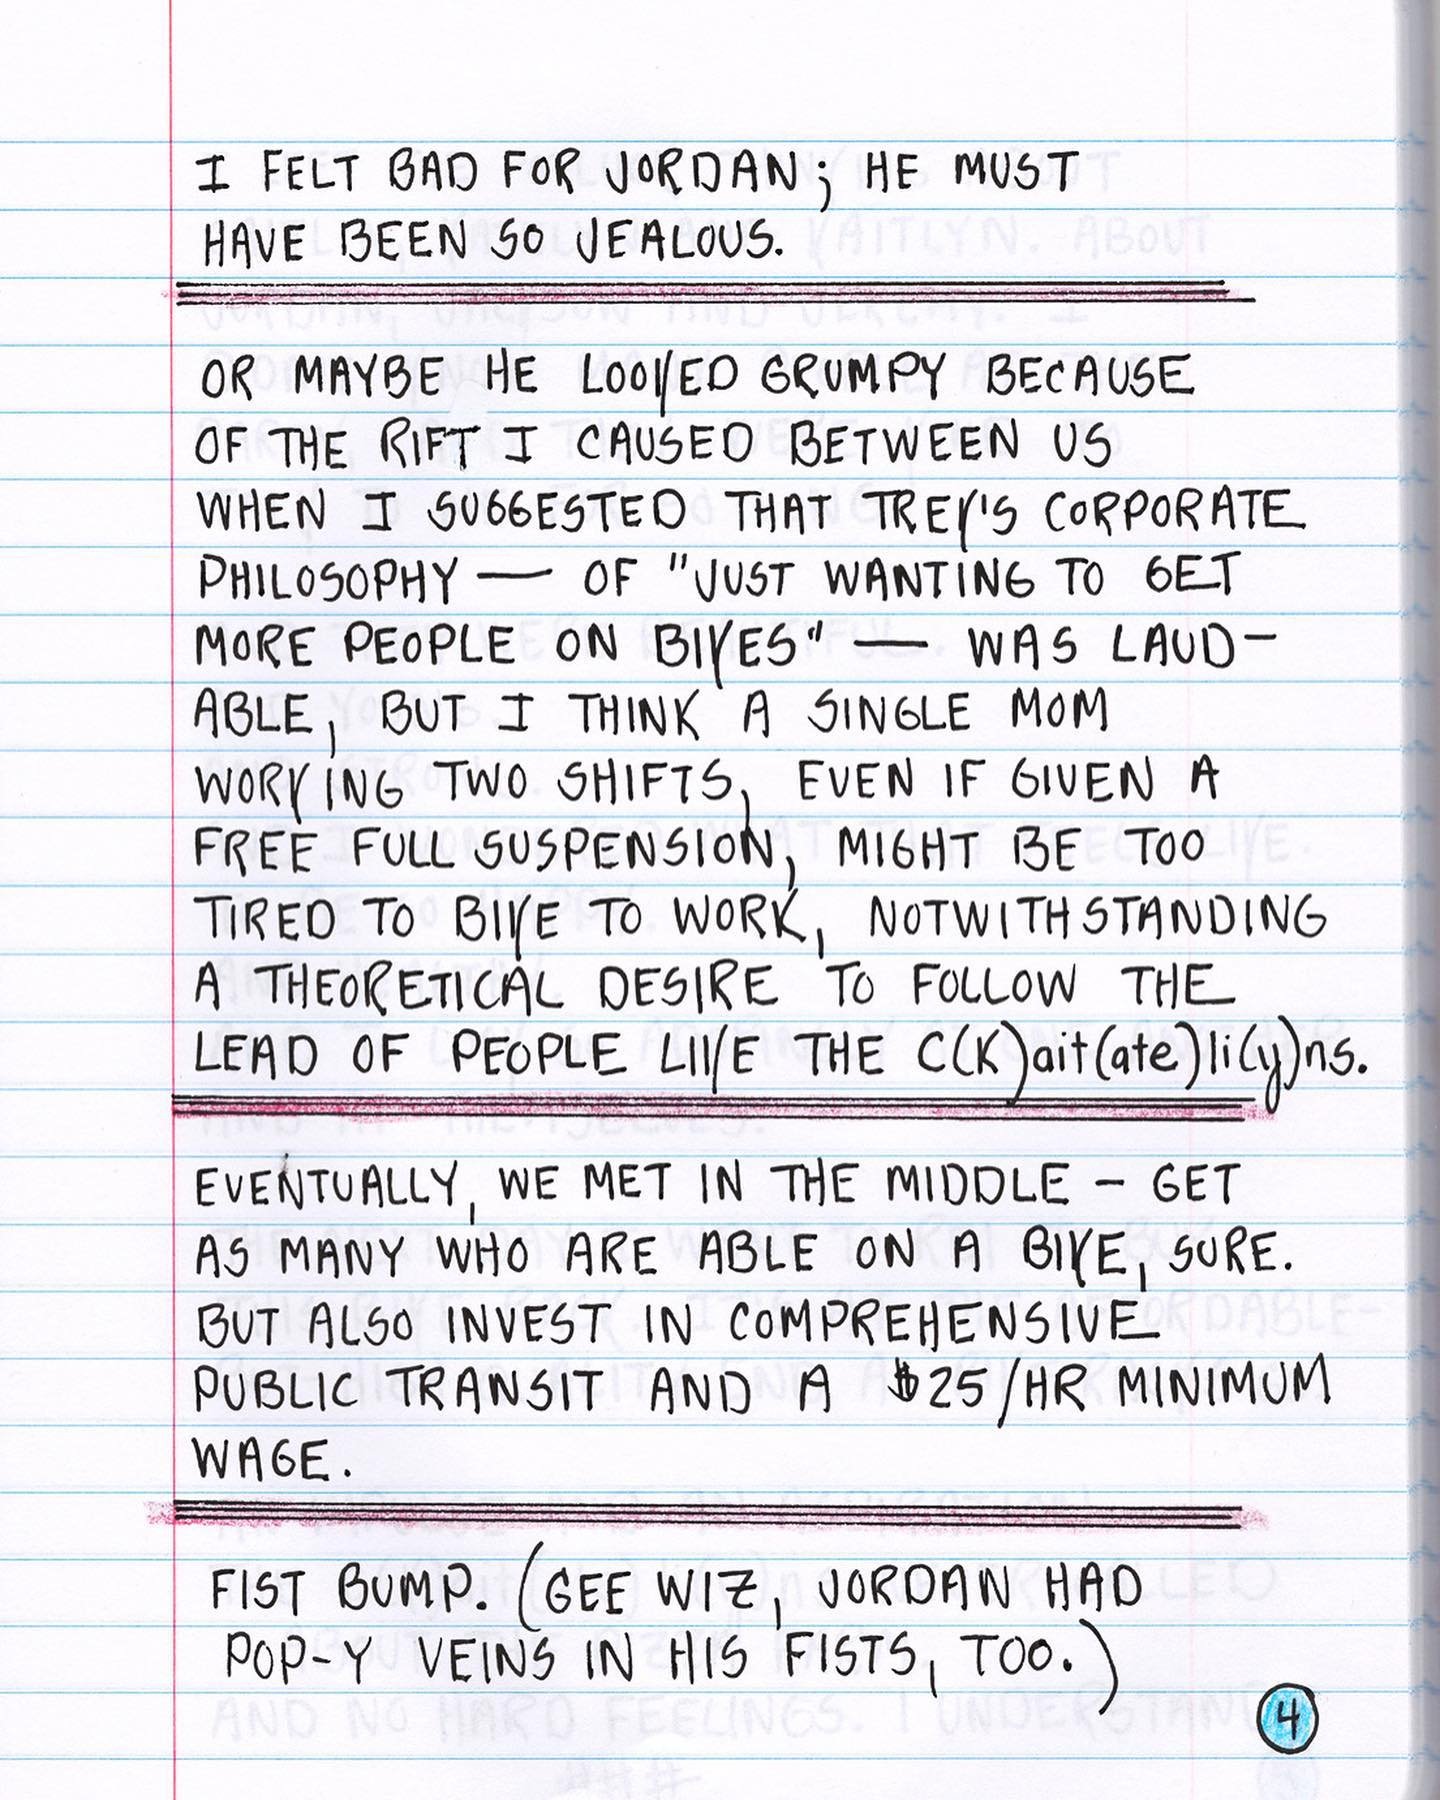 I FELT BAD FOR JORDAN; HE MUST
HAVE BEEN SO JEALOUS.
OR MAYBE HE LOOKED GRUMPY BECAUSE
OF THE RIFT I CAUSED BETWEEN US
WHEN I SUGGESTED THAT TREK'S CORPORATE
PHILOSOPHY — OF "JUST WANTING TO GET
MORE PEOPLE ON BIKES" — WAS LAUD-
ABLE, BUT I THINK A SINGLE MOM
WORKING TWO SHIFTS, EVEN IF GIVEN A
FREE FULL SUSPENSION, MIGHT BE TOO
TIRED TO BIKE TO WORK, NOTWITHSTANDING
A THEORETICAL DESIRE TO FOLLOW THE
LEAD OF PEOPLE LIKE THE C(K)ait(ate)li(y)ns.
EVENTUALLY, WE MET IN THE MIDDLE – GET
AS MANY WHO ARE ABLE ON A BIKE, SURE.
BUT ALSO INVEST IN COMPREHENSIVE
PUBLIC TRANSIT AND A $25/HR MINIMUM
WAGE.
FIST BUMP. (GEE WIZ, JORDAN HAD
POP-Y VEINS IN HIS FISTS, TOO.)
4